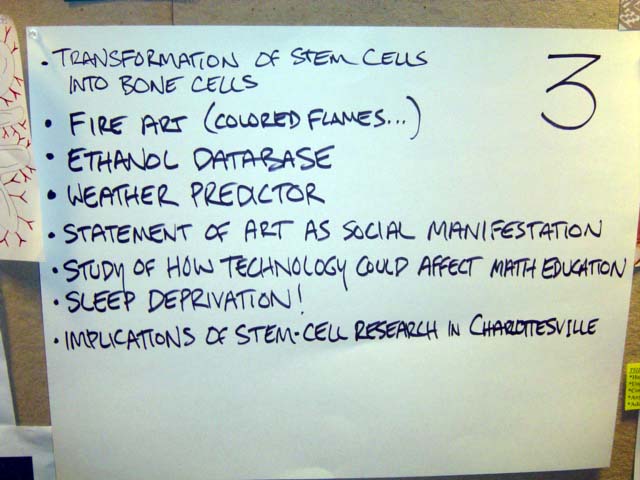 • TRANSFORMATION OF STEM CELLS
INTO BONE CELLS
3
• FIRE ART (COLORED FLAMES...)
• ETHANOL DATABASE
• WEATHER PREDICTOR
• STATEMENT OF ART AS SOCIAL MANIFESTATION
• STUDY OF HOW TECHNOLOGY COULD AFFECT MATH EDUCATION
• SLEEP DEPRIVATION!
• IMPLICATIONS OF STEM-CELL RESEARCH IN CHARLOTTESVILLE